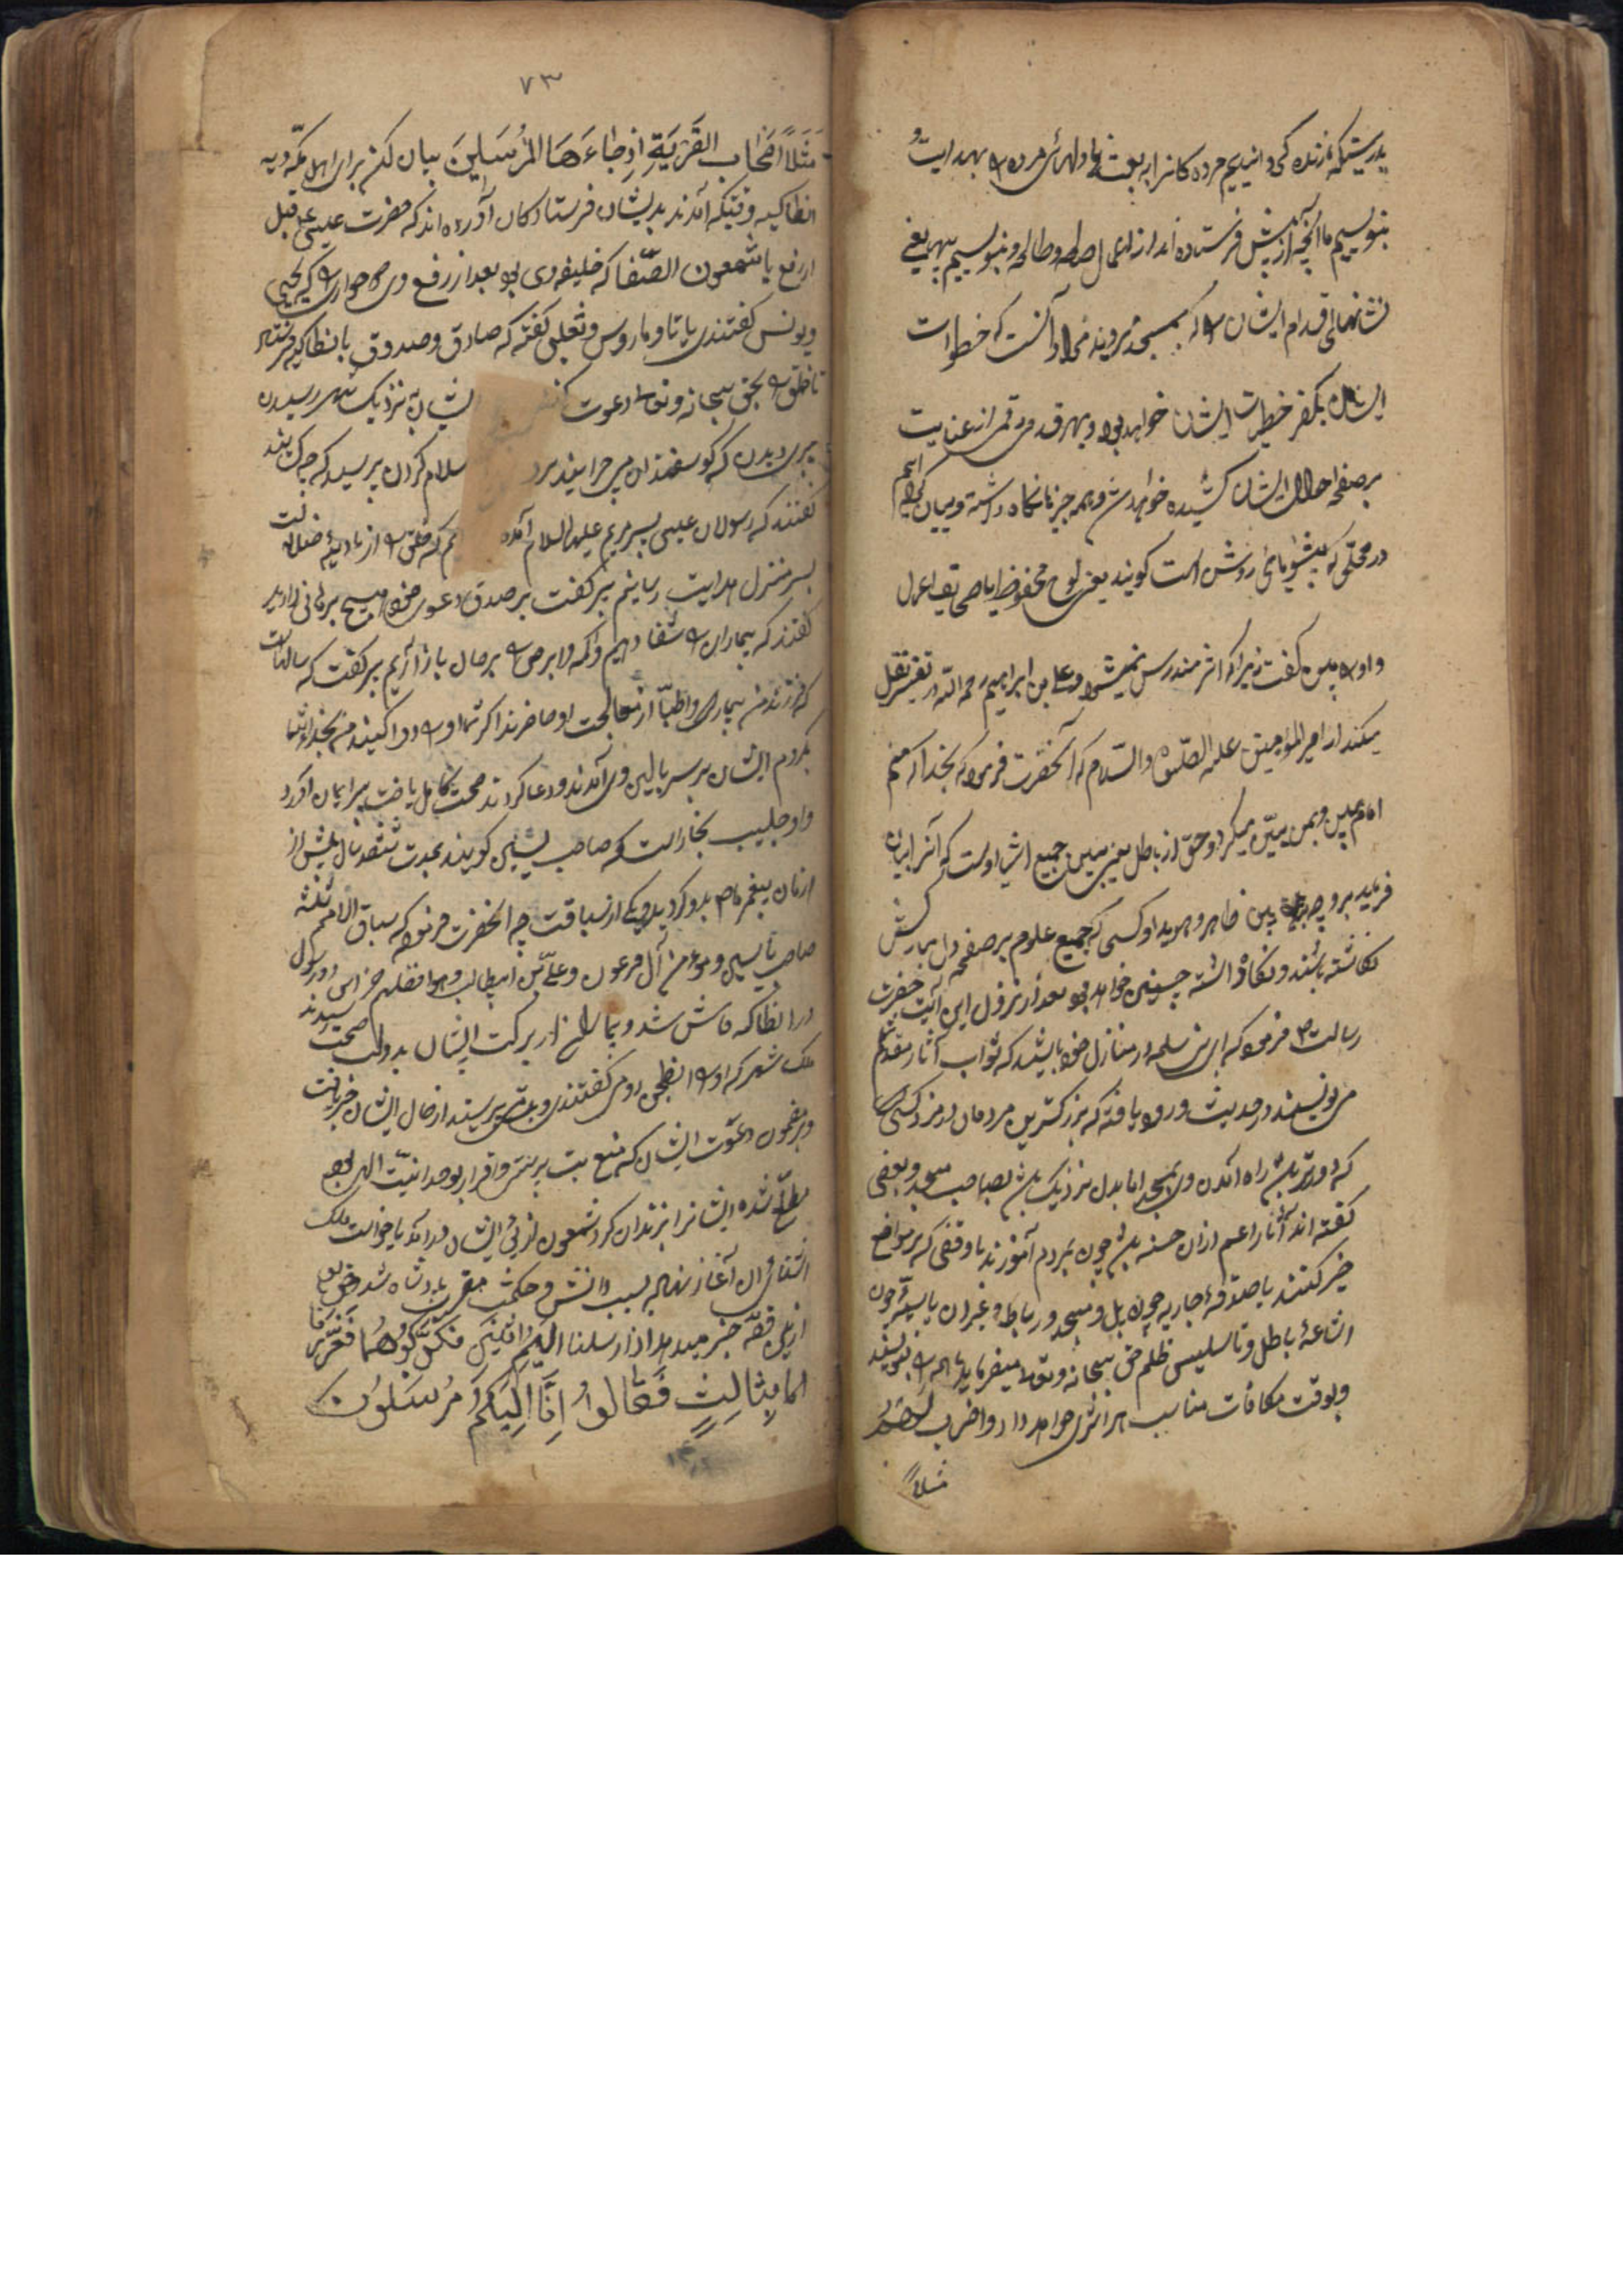 بدرستیکه ما زنده گردانیدیم مردکانرا ببعث یا دلهای مرده را بهدایت و
بنویسیم ما آنچه از پیش فرستاده اند از اعمال صالحه و طالحه و بنویسیم یعنی
نشانهای اقدام ایشان را که بمسجد میروند مراد آنست که خطوات
ایشان خطیرات ایشان خواهد بود و بهر قدمی رقمی از عنایت
بر صفحه احوال ایشان کشیده خواهد شد و همه چیز نگاه داشته و بیان کرده ایم
در محلی که پیشوای روشن است گویند یعنی لوح محفوظ یا صحائف اعمال
و او را مبین گفت زیرا که اثر مندرس نمیشود و علی بن ابراهیم رحمه الله در تفسیر نقل
میکند از امیر المؤمنین علیه الصلوة والسلام که آنحضرت فرمود که بخدا که منم
امام مبین و بمن مبین میگردد حق از باطل یعنی مبین جمیع اشیا اوست که آنرا بیان
فرماید بر وجه ظاهر و هویدا و کسی که جمیع علوم بر صفحه دل مبارکش
نکاشته باشند و نگاه داشته چنین خواهد بود بعد از نزول این آیت حضرت
رسالت ص فرمود که ای بنی سلمه در منازل خود باشید که ثواب آثار مقدم شما
می نویسند در حدیث ورود یافته که بزرگترین مردمان در مزد کسی است
که دورتر باشد راه آمدن او بمسجد اما بدل نزدیک باشد بصاحب مسجد و بعضی
گفته اند آثار اعم از آن حسنه باشد چون بمردم آموزند یا وقفی که بر مواضع
خیر کنند یا صدقه جاریه چون پل و مسجد و رباط و غیر آن یا سیئه چون
اشاعه باطل و تاسیس ظلم حق سبحانه و تعالی میفرماید که ما همه را بنویسیم
و بوقت مکافات مناسب هر اثری خواهد داد و اضرب لهم
مثلاً
۷۳
مَثَلًا أَصْحَابَ القَرْيَةِ إِذْ جَاءَهَا المُرْسَلِينَ بیان کن برای اهل مکه دیه
انطاکیه وقتیکه آمدند بدیشان فرستادگان آورده اند که حضرت عیسی ع قبل
از رفع یا شمعون الصفا که خلیفه وی بود بعد از رفع وی دو حواری را که یحیی
و یونس گفتندی یا تاو ماروس و ثعلبی گفته که صادق و صدوق بانطاکیه فرستاد
تا خلق را بحق سبحانه و تعالی دعوت کنند ایشان نزدیک شهر رسیدن
پیری دیدن که گوسفندان می چرانید بر سلام کردن پرسید که چه کسانید
گفتند که رسولان عیسی پسر مریم علیهما السلام آمده ایم که خلق را از بادیه ضلالت
بسر منزل هدایت رسانیم پیر گفت بر صدق دعوی خود هیچ برهانی دارید
گفتند که بیماران را شفا دهیم و اکمه و ابرص را بحال باز آریم پیر گفت که سالهاست
که فرزند من بیمارست و اطبا از معالجت او عاجزند اگر شما او را دوا کنید من بخدای شما
بگروم ایشان بر سر بالین وی آمدند و دعا کردند صحت کامل یافت پیر ایمان آورد
و او حبیب نجار است که صاحب یسین گویند بمدت ششصد سال پیش از
زمان پیغمبر ما ص بدو گروید و یکی از سباقت چه آنحضرت فرمود که سباق الامم ثلثة
صاحب یاسین و مؤمن آل فرعون و علی بن ابیطالب و هو افضلهم خبر این دو رسول
در انطاکیه فاش شد و بیماران از برکت ایشان بدولت صحت رسیدند
ملک شهر که او را انطیخس رومی گفتندی و بت پرستید از حال ایشان خبر یافت
و بر مضمون دعوت ایشان که منع بت پرستی و اقرار بوحدانیت الهی بود
مطلع شده ایشانرا بزندان کرد شمعون از پی ایشان در آمد با خواص ملک
آشنائی آن آغاز نهاد بسبب دانش و حکمت مقرب پادشاه شد حق تعالی
ازین قصه خبر میدهد اذ ارسلنا الیهم اثنین فکذبوهما فعززنا
بِثَالِثٍ فَقَالُوا إِنَّا إِلَيْكُمْ مُرْسَلُونَ